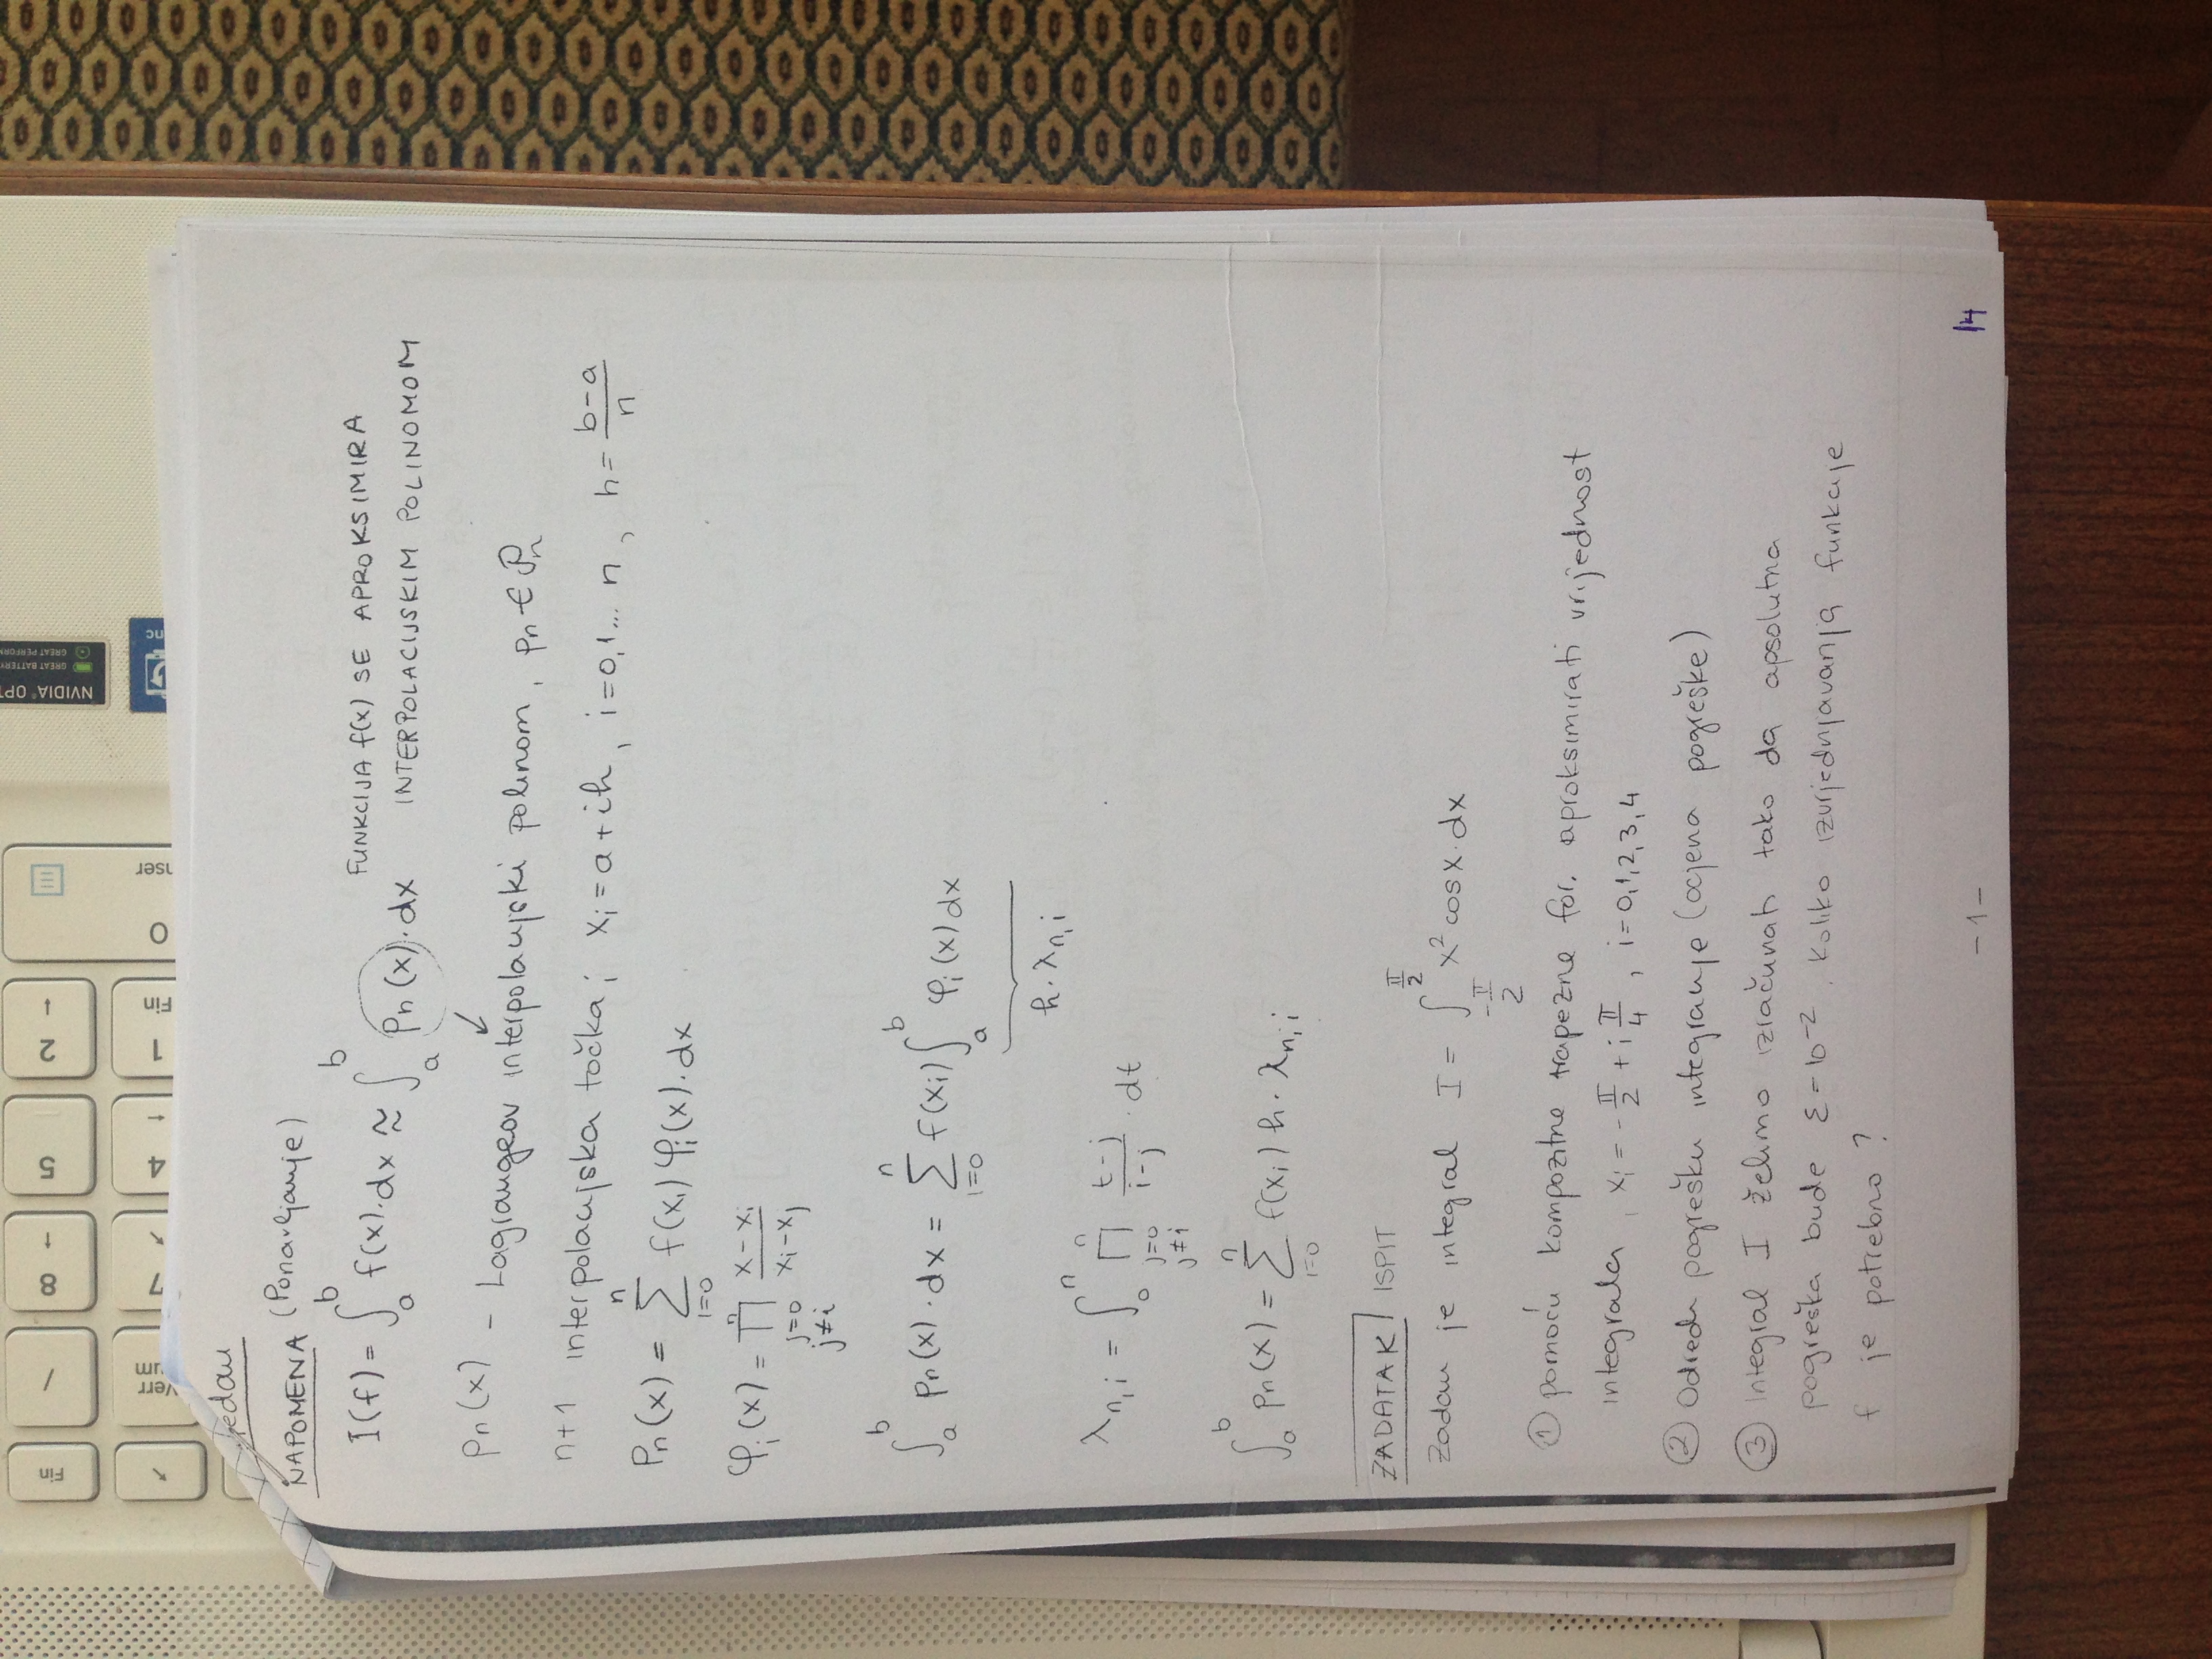 Fin / 8 ↑ 5 2 ↓
↖ Verr 7 ↖ 4 ← 1 Fin 0
um nser
NVIDIA® OPT
GREAT BATTERY
GREAT PERFORM
nc
NAPOMENA (Ponavljanje)
I(f) = ∫_a^b f(x)·dx ≈ ∫_a^b pn(x)·dx FUNKCIJA f(x) SE APROKSIMIRA
INTERPOLACIJSKIM POLINOMOM
pn(x) – Lagrangeov interpolacijski polinom, pn ∈ Pn
n+1 interpolacijska točka; xi = a+ih, i=0,1... n, h = (b-a)/n
Pn(x) = Σ_{i=0}^n f(xi) φi(x)·dx
φi(x) = Π_{j=0, j≠i}^n (x-xi)/(xi-xj)
∫_a^b pn(x)·dx = Σ_{i=0}^n f(xi) ∫_a^b φi(x)dx
h·λn,i
λn,i = ∫_0^n Π_{j=0, j≠i}^n (t-j)/(i-j)·dt
∫_a^b pn(x) = Σ_{i=0}^n f(xi) h·λn,i
ZADATAK ISPIT
Zadan je integral I = ∫_{-π/2}^{π/2} x² cosx·dx
① pomoću kompozitne trapezne for. aproksimirati vrijednost
integrala, xi = -π/2 + i π/4, i=0,1,2,3,4
② Odredi pogrešku integranje (ocjena pogreške)
③ Integral I želimo izračunati tako da apsolutna
pogreška bude ε=10⁻², koliko izvrjednjavanja funkcije
f je potrebno?
-1-
14